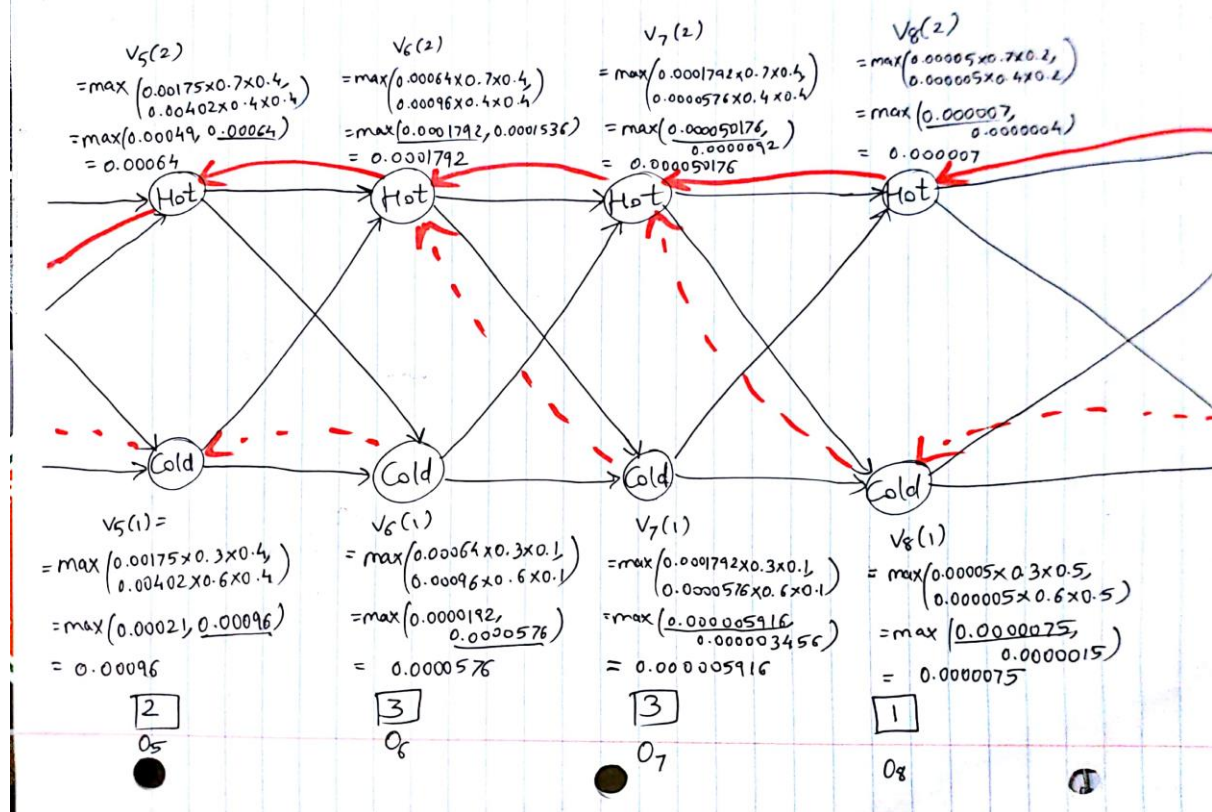 V5(2)
=max(0.00175x0.7x0.4,
0.00402x0.4x0.4)
=max(0.00049, 0.00064)
= 0.00064
V6(2)
=max(0.00064x0.7x0.4,
0.00096x0.4x0.4)
=max(0.0001792, 0.0001536)
= 0.0001792
V7(2)
=max(0.0001792x0.7x0.4,
0.0000576x0.4x0.4)
=max(0.000050176,
0.0000092)
= 0.000050176
V8(2)
=max(0.00005x0.7x0.2,
0.000005x0.4x0.2)
=max(0.000007,
0.0000004)
= 0.000007
Hot
Hot
Hot
Hot
Cold
Cold
Cold
Cold
V5(1)=
=max(0.00175x0.3x0.4,
0.00402x0.6x0.4)
=max(0.00021, 0.00096)
= 0.00096
2
O5
V6(1)
=max(0.00064x0.3x0.1,
0.00096x0.6x0.1)
=max(0.0000192,
0.0000576)
= 0.0000576
3
O6
V7(1)
=max(0.0001792x0.3x0.1,
0.0000576x0.6x0.1)
=max(0.000005916,
0.000003456)
= 0.000005916
3
O7
V8(1)
= max(0.00005x0.3x0.5,
0.000005x0.6x0.5)
=max(0.0000075,
0.0000015)
= 0.0000075
1
O8